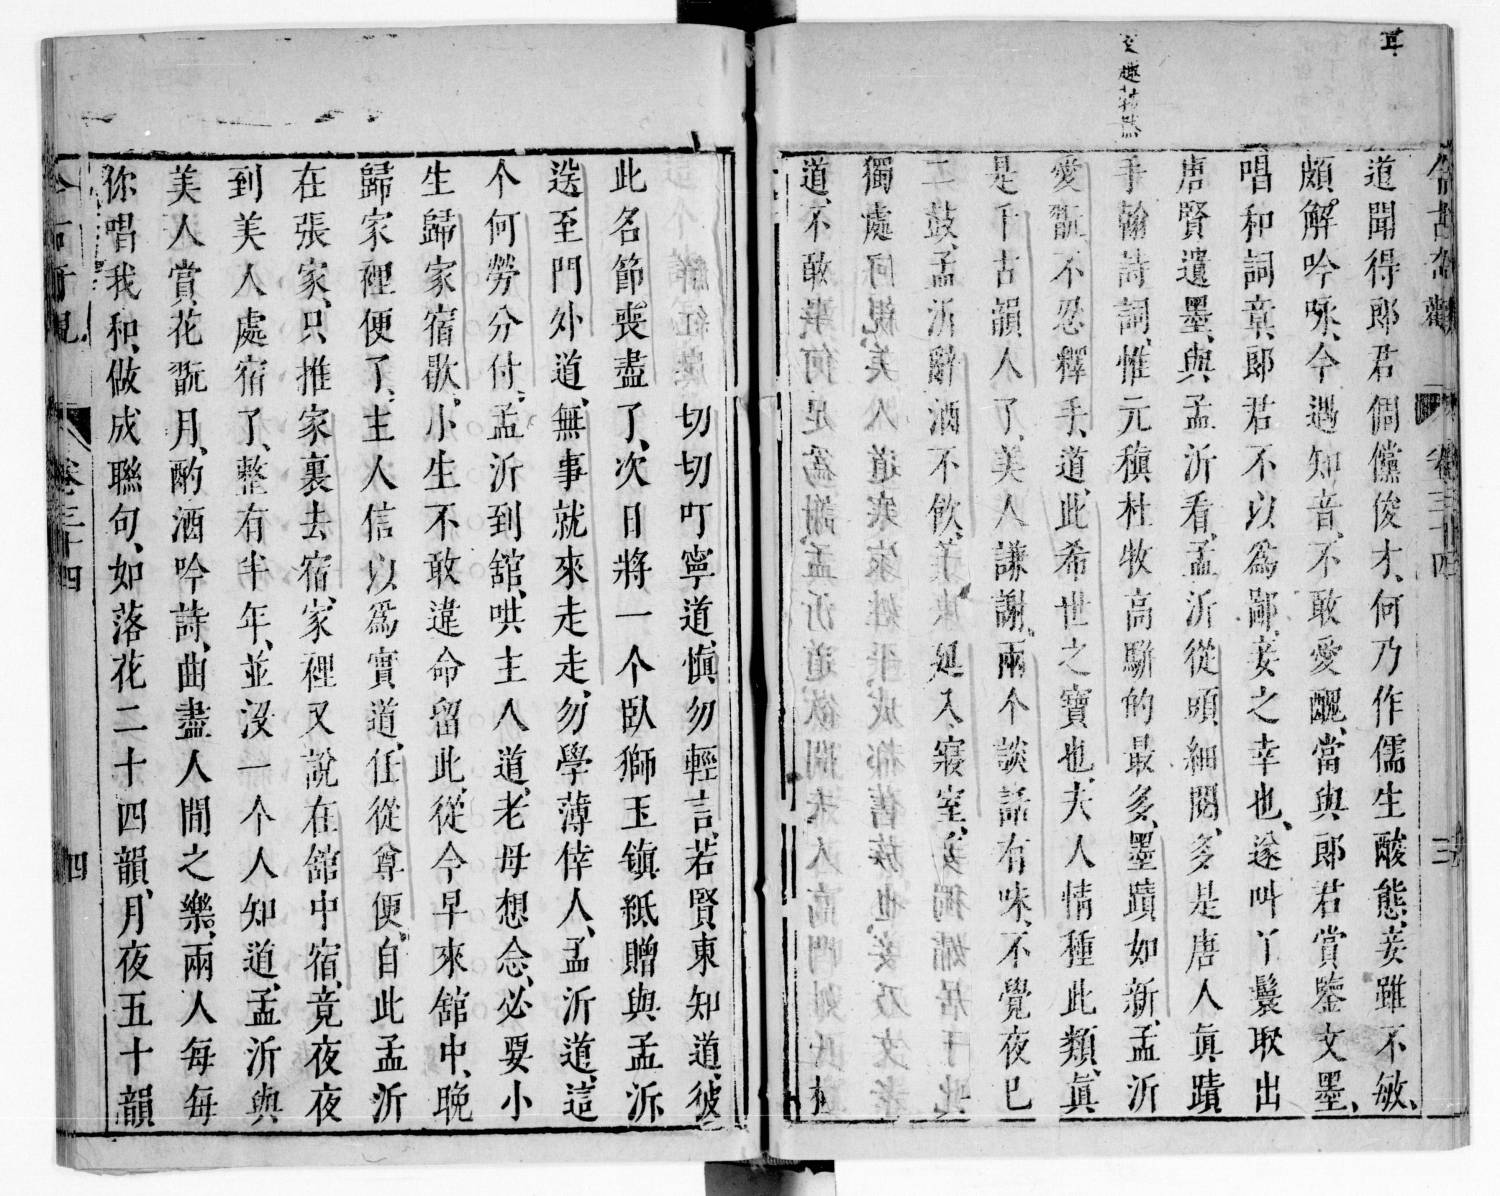 耳
文趣
今古奇觀
卷三十四
三
道聞得郎君倜儻俊才、何乃作儒生酸態、妾雖不敏、
頗解吟咏、今遇知音、不敢愛醜、當與郎君賞鑒文墨、
唱和詞章、郎君不以爲鄙、妾之幸也、遂叫丫鬟取出
唐賢遺墨、與孟沂看、孟沂從頭細閱、多是唐人眞蹟
手翰詩詞、惟元稹杜牧高駢的最多、墨蹟如新、孟沂
愛翫、不忍釋手、道、此希世之寶也、夫人情種此類、眞
是千古韻人了、美人謙謝、兩个談話有味、不覺夜已
二鼓、孟沂辭酒不飲、美 延入寢室、
獨處
道、不敢
切切叮寧道、愼勿輕言、若賢東知道、彼
此名節喪盡了、次日將一个臥獅玉镇紙贈與孟沂
送至門外道、無事就來走走、勿學薄倖人、孟沂道、這
个何勞分付、孟沂到舘、哄主人道、老母想念、必要小
生歸家宿歇、小生不敢違命畱此、從今早來舘中、晚
歸家裡便了、主人信以爲實、道、任從尊便、自此孟沂
在張家、只推家裏去宿、家裡又說在舘中宿、竟夜夜
到美人處宿了、整有半年、並沒一个人知道、孟沂與
美人賞花翫月、酌酒吟詩、曲盡人間之樂、兩人每每
你唱我和、做成聯句、如落花二十四韻、月夜五十韻
卷三十四
四